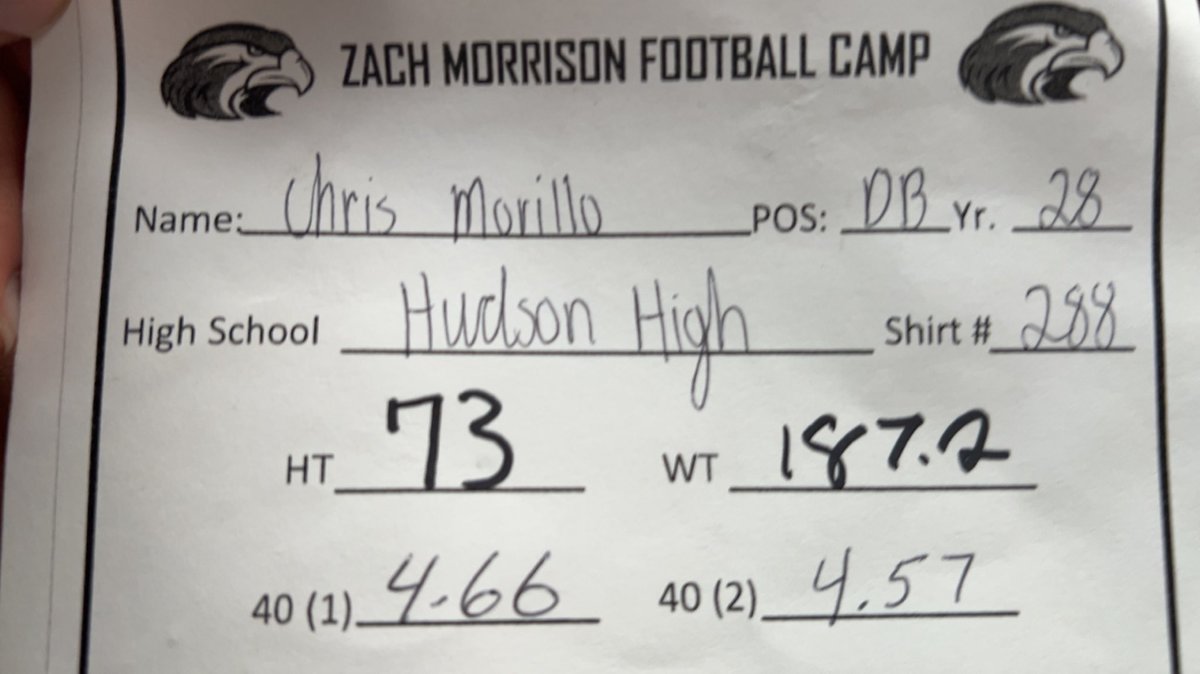 ZACH MORRISON FOOTBALL CAMP
Name: Chris Morillo POS: DB Yr. 28
High School Hudson High Shirt # 288
HT 73 WT 187.2
40 (1) 4.66 40 (2) 4.57